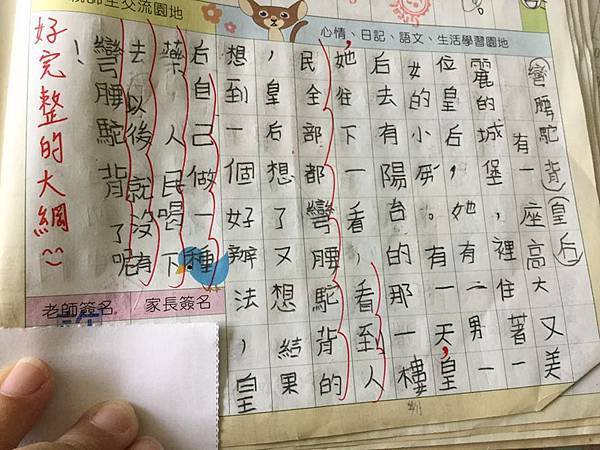 師生交流園地
心情、日記、語文、生活學習園地
(彎腰駝背)(皇后)
有一座高大又美
麗的城堡，裡住著一
位皇后，她有一男一
女的小孩。有一天，皇
后去有陽台的那一樓
，她往下一看，看到人
民全部都彎腰駝背的
，皇后想了又想結果
想到一個好辦法，皇
后自己做一種
藥，人民喝下
去以後就沒有
彎腰駝背了呢
！
好完整的大綱
老師簽名
家長簽名